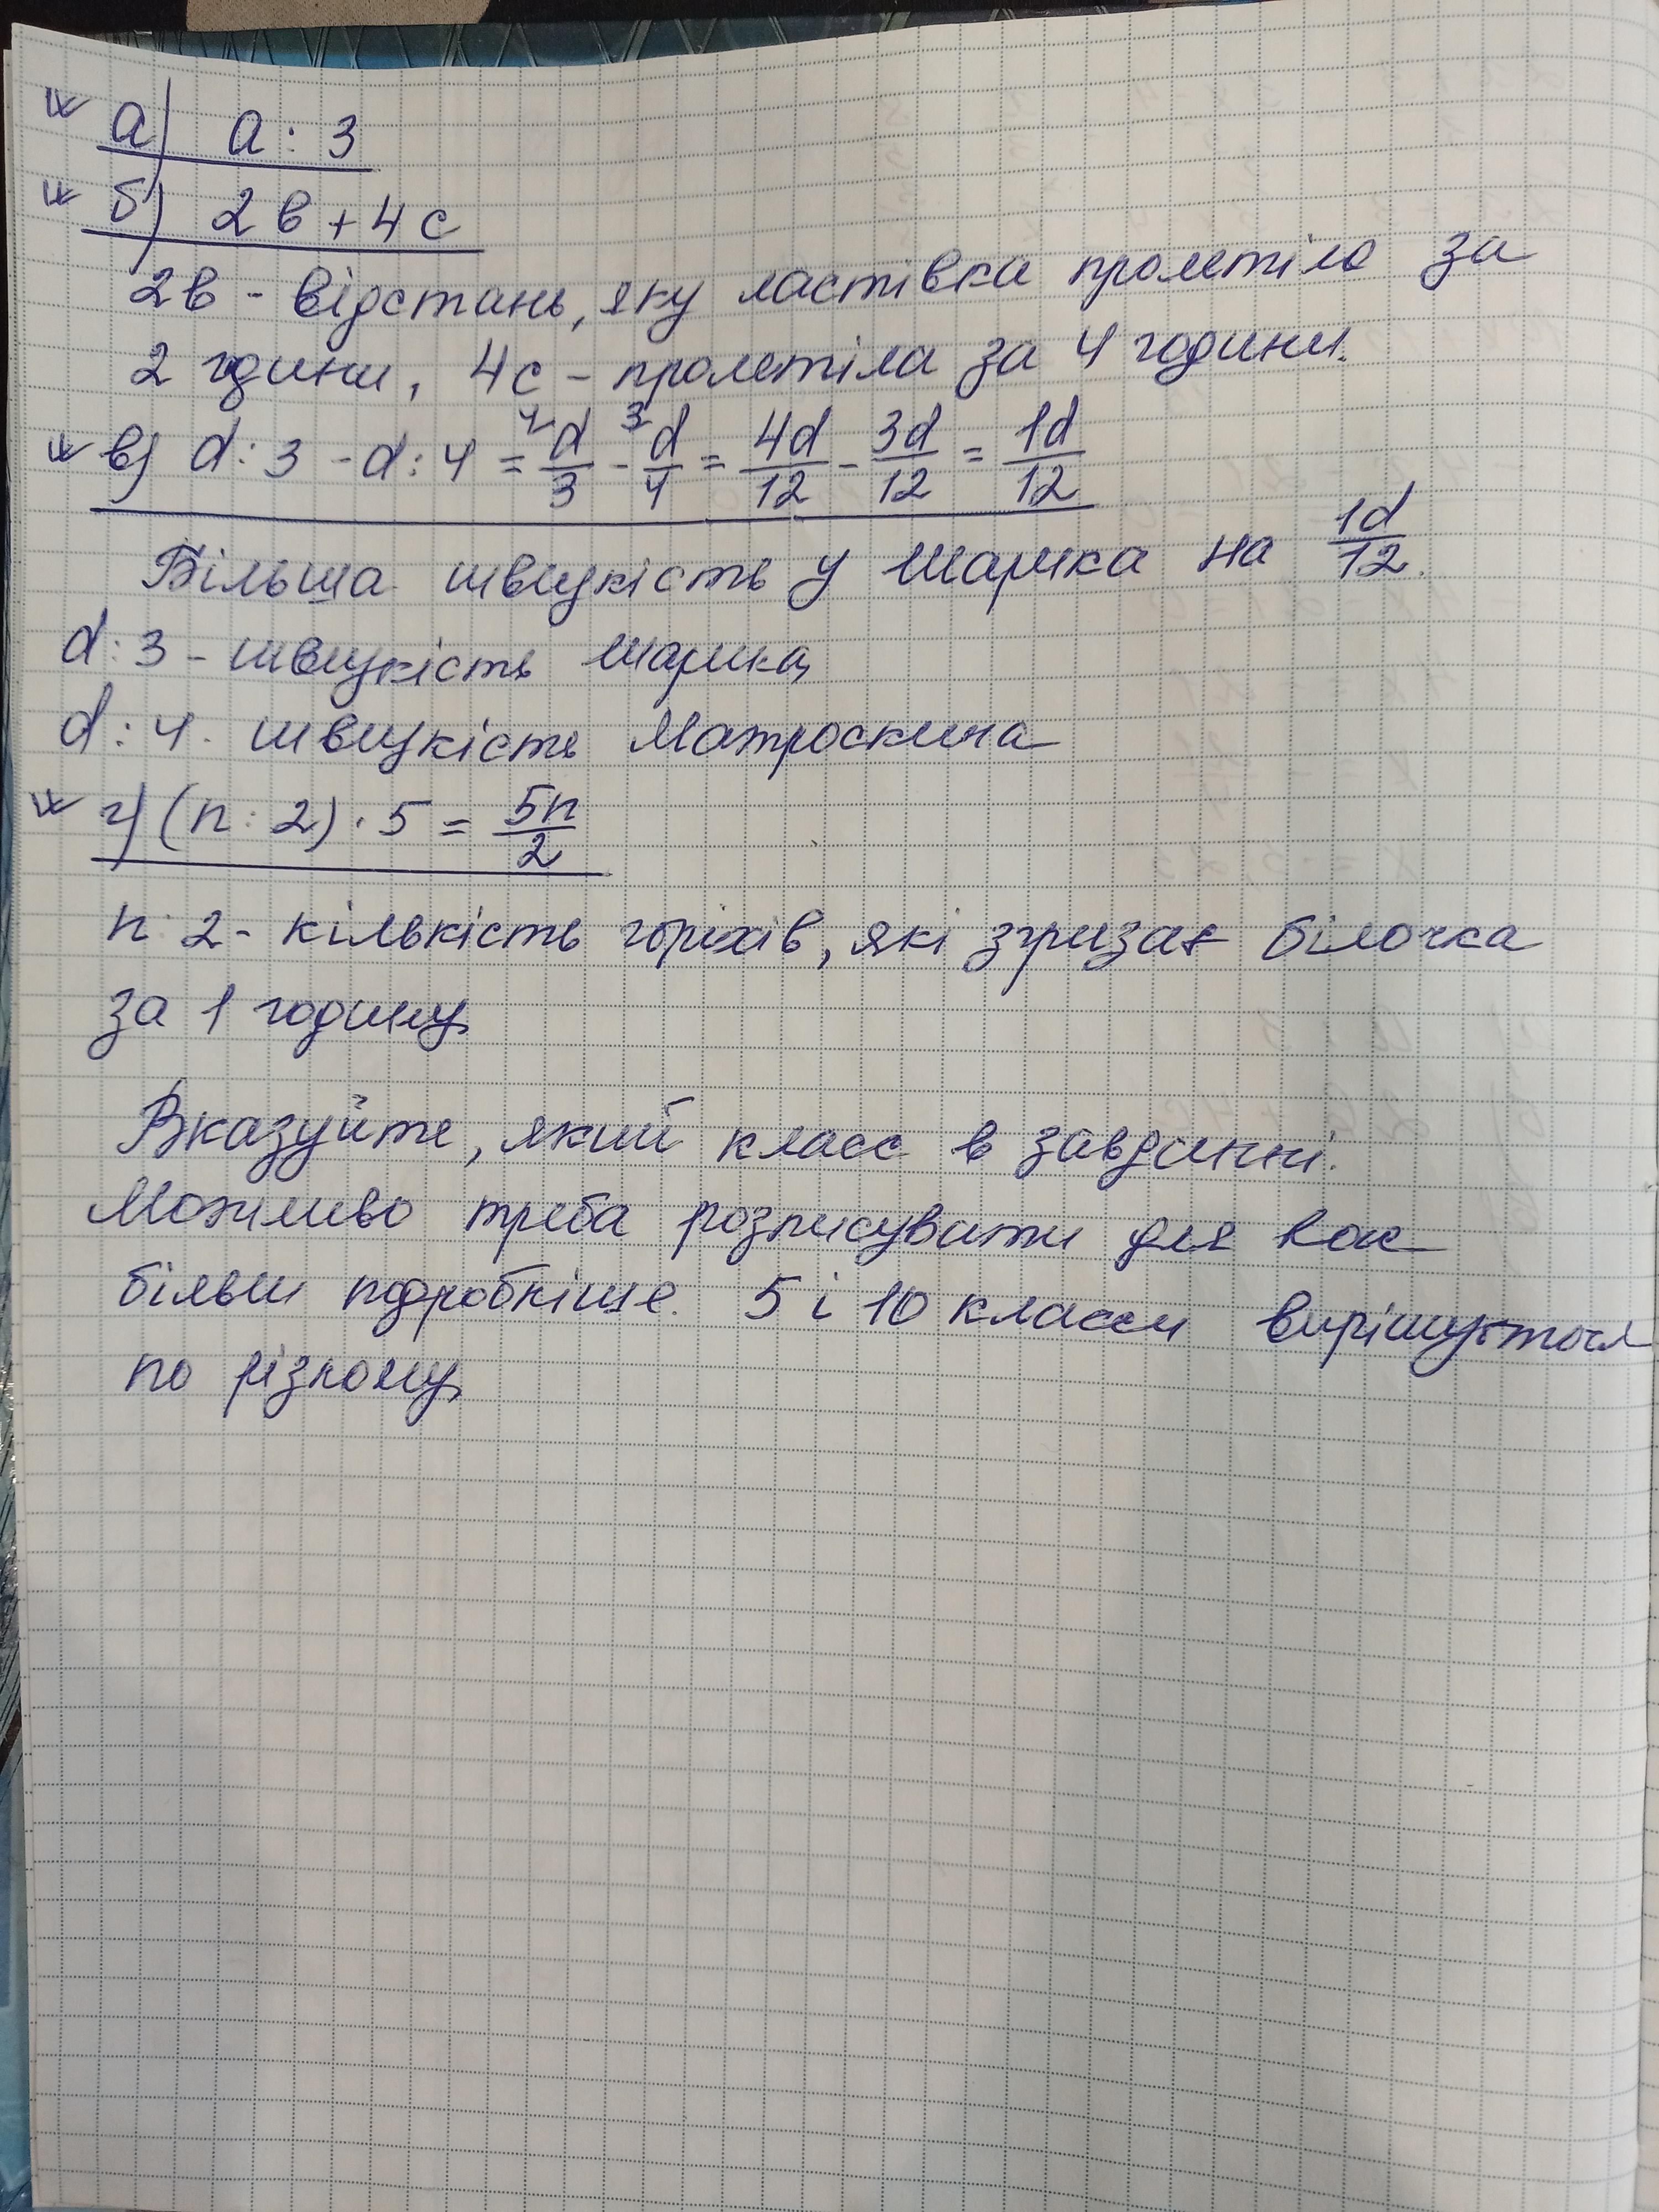 а) a : 3
б) 2b + 4c
2b - відстань, яку ластівка пролетіла за
2 години, 4c - пролетіла за 4 години.
в) d : 3 - d : 4 = ⁴d/3 - ³d/4 = 4d/12 - 3d/12 = 1d/12
Більша швидкість у Шарика на 1d/12.
d : 3 - швидкість Шарика
d : 4. швидкість Матроскина
г) (n : 2) · 5 = 5n/2
n : 2 - кількість горіхів, які згризає білочка
за 1 годину
Вказуйте, який класс в завданні.
Можливо треба розписувати для вас
більш подробніше. 5 і 10 класси вирішуються
по різному